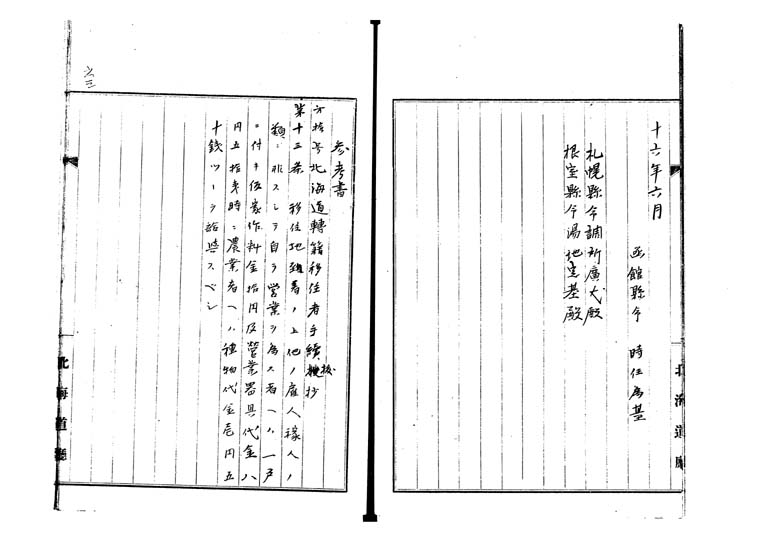 十六年六月
函館縣令 時任為基
札幌縣令調所廣丈殿
根室縣令湯地定基殿
北海道廳
参考書
六拾号北海道轉籍移住者手續抜抄
第十三条 移住地到着ノ上他ノ雇人稼人ノ
類ニ非スシテ自ラ営業ヲ為ス者ヘハ一戸
ニ付キ仮家作料金拾円及営業器具代金八
円五拾銭 農業者ヘハ種物代金壱円五
十錢ツヽヲ給與スベシ
北海道廳